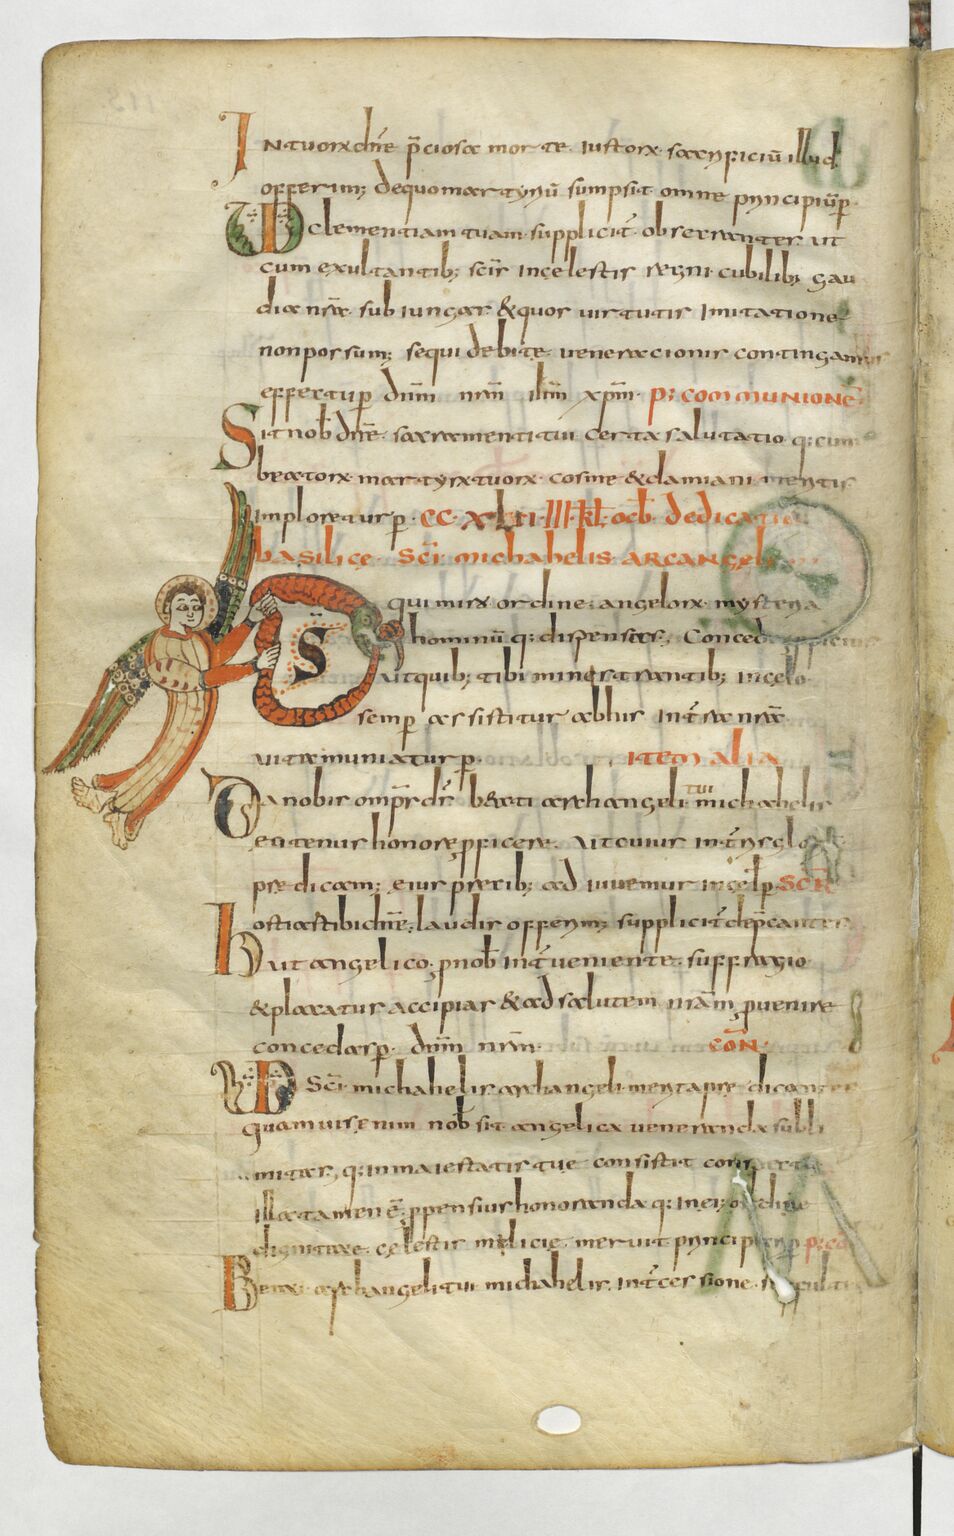 In tuorx dn̄e p̄ciosa morte iustorx sacrificiū illud
offerim; de quo martyriū sumpsit omne principiū p̄
VD clementiam tuam supplicit̄ obserxanter ut
cum exultantib; sc̄is in celestis regni cubilib; gau
dia nr̄a subiungar & quos uirtutis imitatione
non possum; sequi debite ueneracionis contingamus
effectu p̄ dn̄m nr̄m ih̄m xp̄m p; communionē
Sit nob̄ dn̄e sacramenti tui certa salutatio q; cum
beatorx martyrx tuorx cosme & damiani meritis
imploretur p̄ ec xlii iii kl̄ octb̄ dedicatio
basilice sc̄i michahelis arcangeli
Ds qui mirx ordine angelorx mysteria
hominū q; dispensas, Concede
ut quib; tibi ministrantib; in celo
semp̄ assistitur ab his in t̄ra nr̄a
uita muniatur p̄ item alia
Da nobis omp̄s ds̄ beati archangeli tui michahelis
eatenus honore p̄ficere ut cuius in t̄ris glo
predicam; eius precib; adiuuemur in cel̄ p̄ Secr̄
Hostias tibi dn̄e laudis offerim; supplicit̄ dep̄cantes
ut angelico p̄ nob̄ int̄ueniente suffragio
& placatus accipias & ad salutem nr̄am p̄uenire
concedas p̄ dn̄m nr̄m con̄
VD Sc̄i michahelis archangeli merita predicantes
quamuis enim nob̄ sit angelica ueneranda subli
mitas, q; in maiestatis tue consistit conspectu
illa tamen ē p̄pensius honoranda q; in ei; ordine
dignitate celestis milicie meruit principatum p̄ p; co
Beati archangeli tui michahelis int̄cessione suffulti